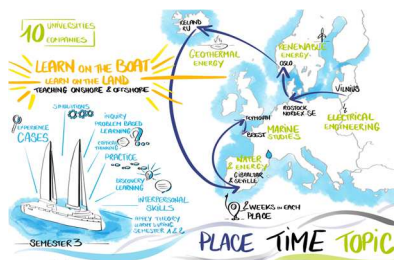 10 UNIVERSITIES
COMPANIES
LEARN ON THE BOAT
LEARN ON THE LAND
TEACHING ONSHORE & OFFSHORE
SABILITIONS
EXPERIENCE
CASES
INQUIRY
PROBLEM BASED
LEARNING
CRITICAL
THINKING
PRACTICE
DISCOVERY
LEARNING
INTERPERSONAL
SKILLS
APPLY THEORY
SEMESTER 1 & 2
SEMESTER 3
GEOTHERMAL
ENERGY
RENENABLE
ENERGY
OSLO
VILNIUS
ROSTOCK
NORDEX-SE
ELECTRICAL
ENGINEERING
PLYMOUTH
BREST
MARINE
STUDIES
WATER &
ENERGY
GIBRALTAR
& SEVILLE
2 WEEKS IN EACH
PLACE
PLACE TIME TOPIC